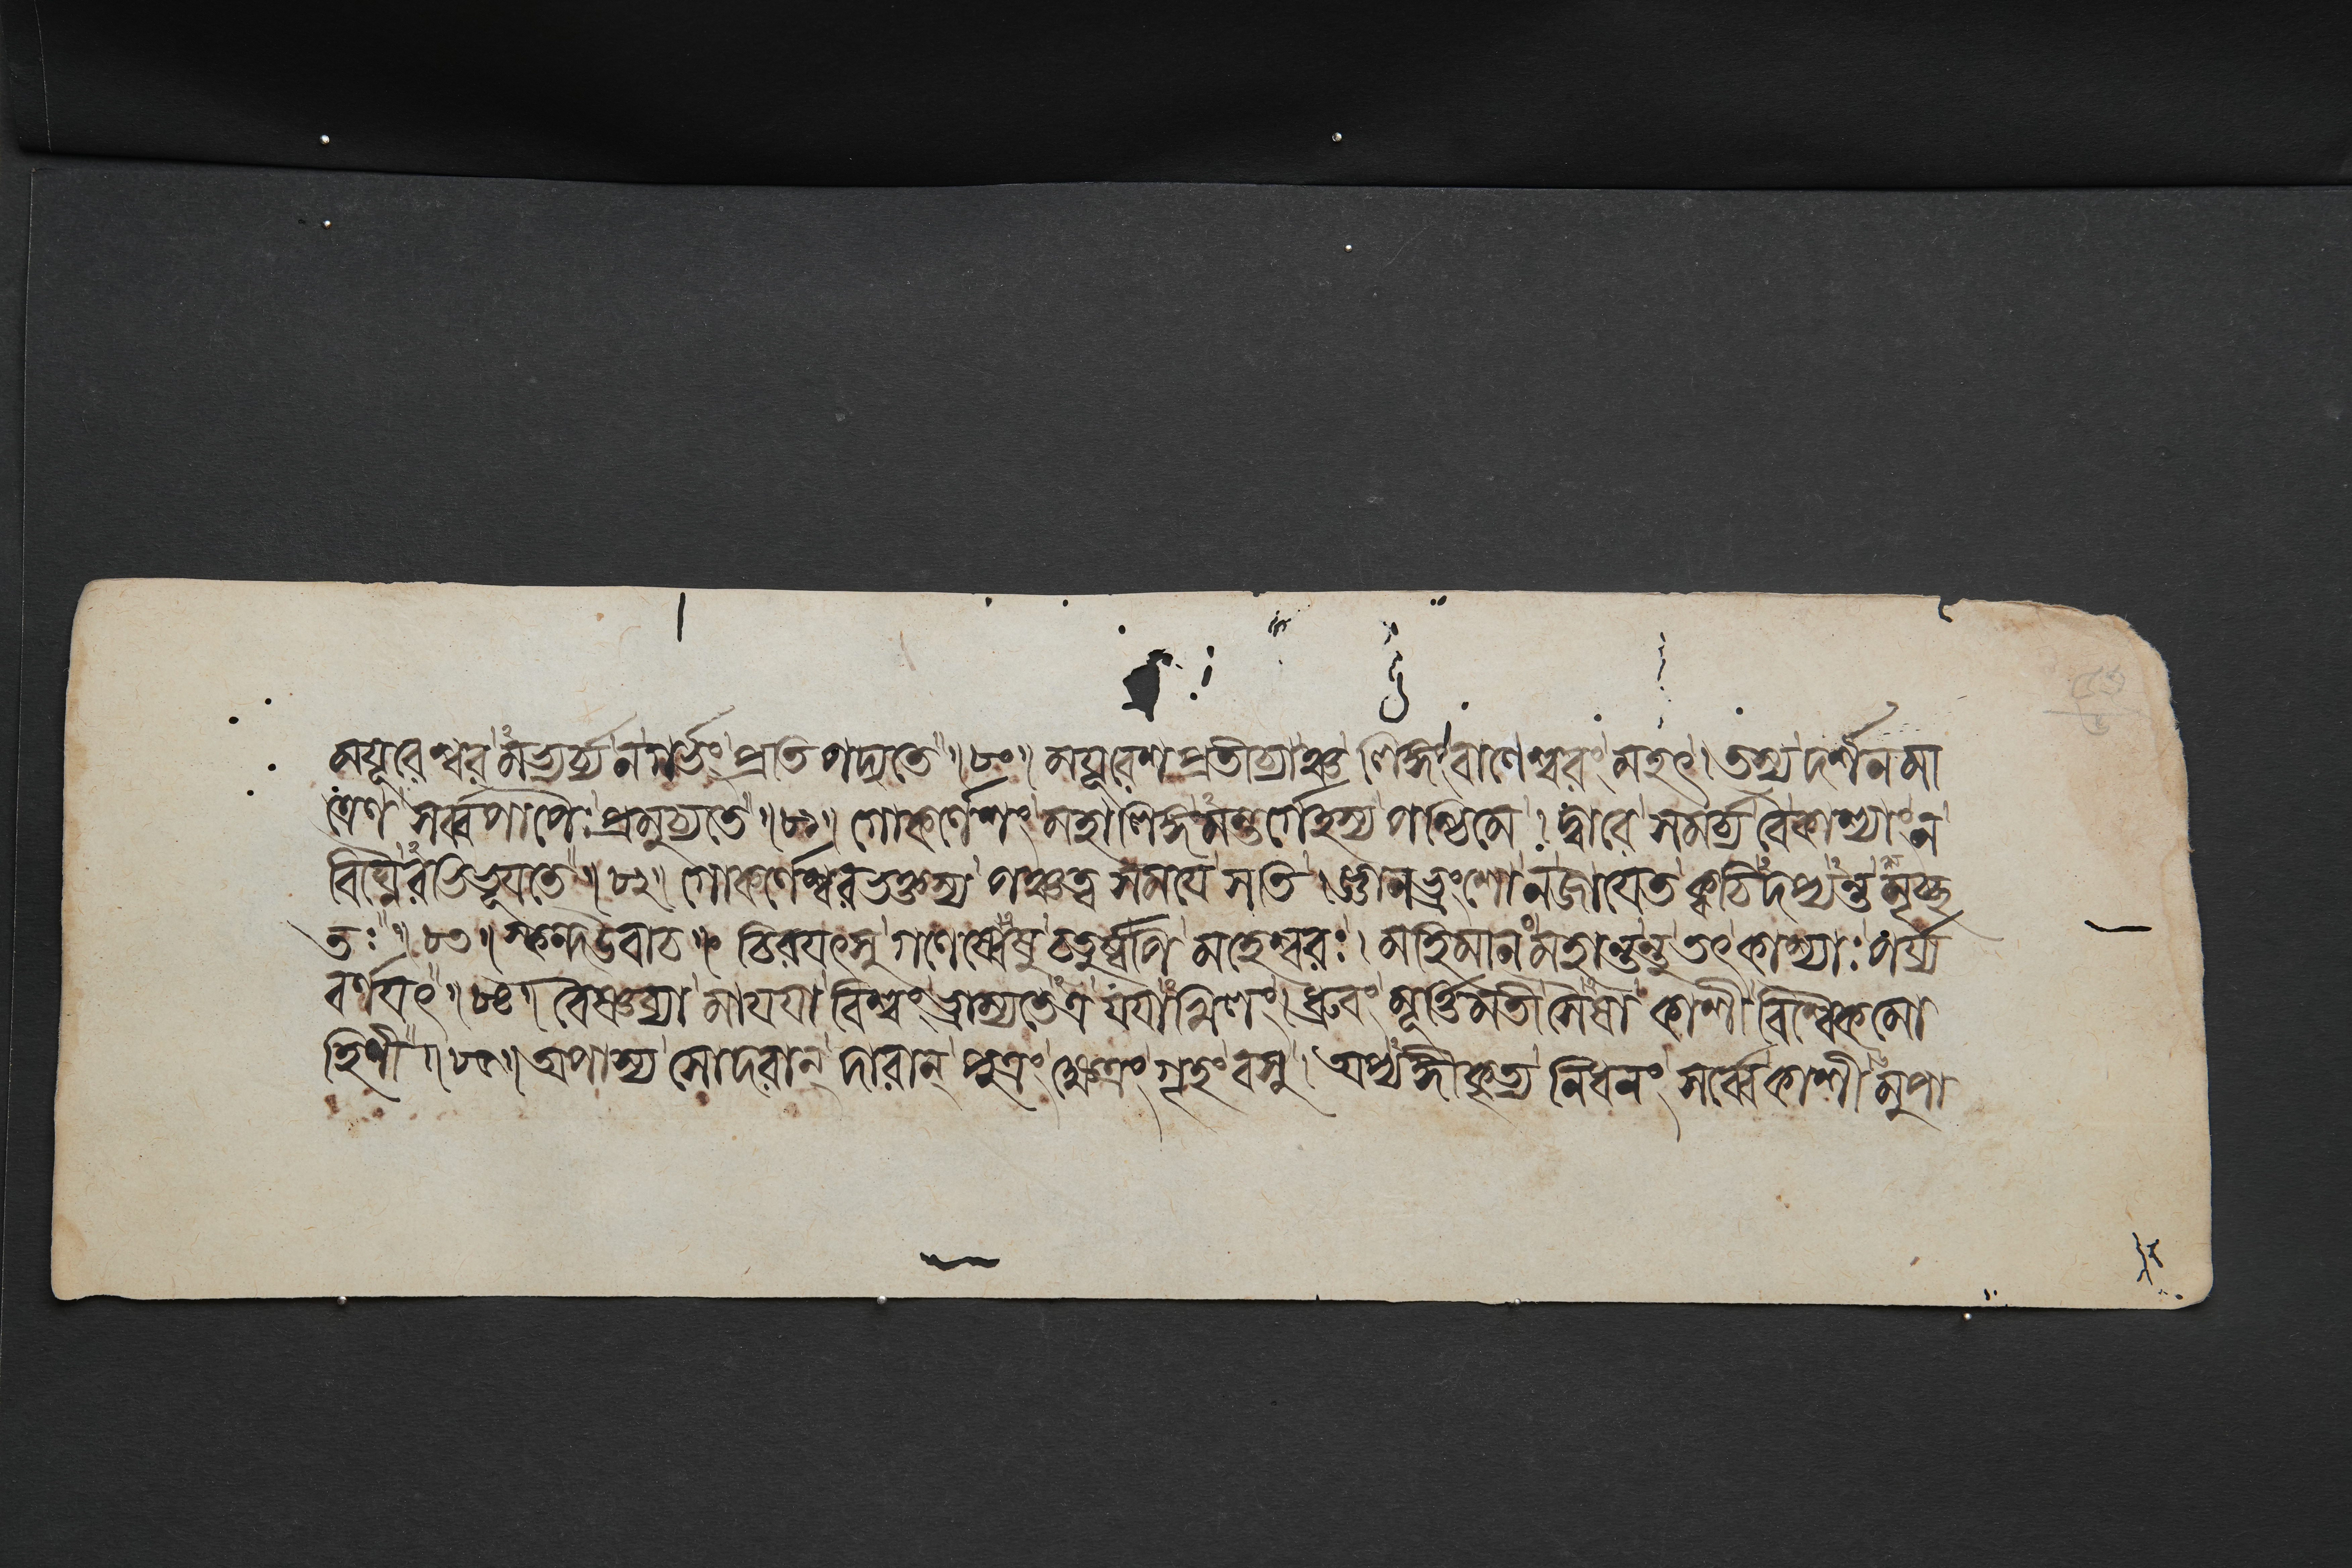 ময়ূরেশ্বরমভ্যর্চ্য ন গর্ভং প্রতিপদ্যতে ॥ ৮০ ॥ ময়ূরেশপ্রতীচ্যাঞ্চ লিঙ্গং বাণেশ্বরং মহৎ । তস্য দর্শনমা
ত্রেণ সর্ব্বপাপৈঃ প্রমুচ্যতে ॥ ৮১ ॥ গোকর্ণেশং মহালিঙ্গমন্তর্গেহস্য পশ্চিমে । দ্বারে সমর্চ্য বৈ কাশ্যাং ন
বিঘ্নৈরভিভূয়তে ॥ ৮২ ॥ গোকর্ণেশ্বরভক্তস্য পঞ্চত্বসময়ে সতি । জ্ঞানভ্রংশো ন জায়েত ক্বচিদপ্যন্তমৃচ্ছ
তঃ ॥ ৮৩ ॥ স্কন্দ উবাচ ॥ চিরয়ৎসু গণেষ্বেষু চতুর্ষ্বপি মহেশ্বরঃ । মহিমানং মহান্তন্তু তৎ কাশ্যাঃ পর্য্য
বর্ণয়ৎ ॥ ৮৪ ॥ বৈষ্ণব্যা মায়য়া বিশ্বং ভ্রাম্যতেঽত্র যয়াখিলং । ধ্রুবং মূর্ত্তিমতী সৈষা কাশী বিশ্বৈকমো
হিনী ॥ ৮৫ ॥ অপাস্য সোদরান্ দারান্ পুত্রং ক্ষেত্রং গৃহং বসু । অপ্যঙ্গীকৃত্য নিধনং সর্ব্বে কাশীমুপা